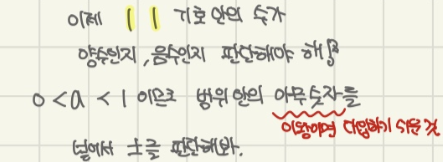 이제 | | 기호 안의 수가
양수인지, 음수인지 판단해야 해!
0 < a < 1 이므로 범위 안의 아무 숫자를
이왕이면 대입하기 쉬운 것
넣어서 ±를 판단해봐.